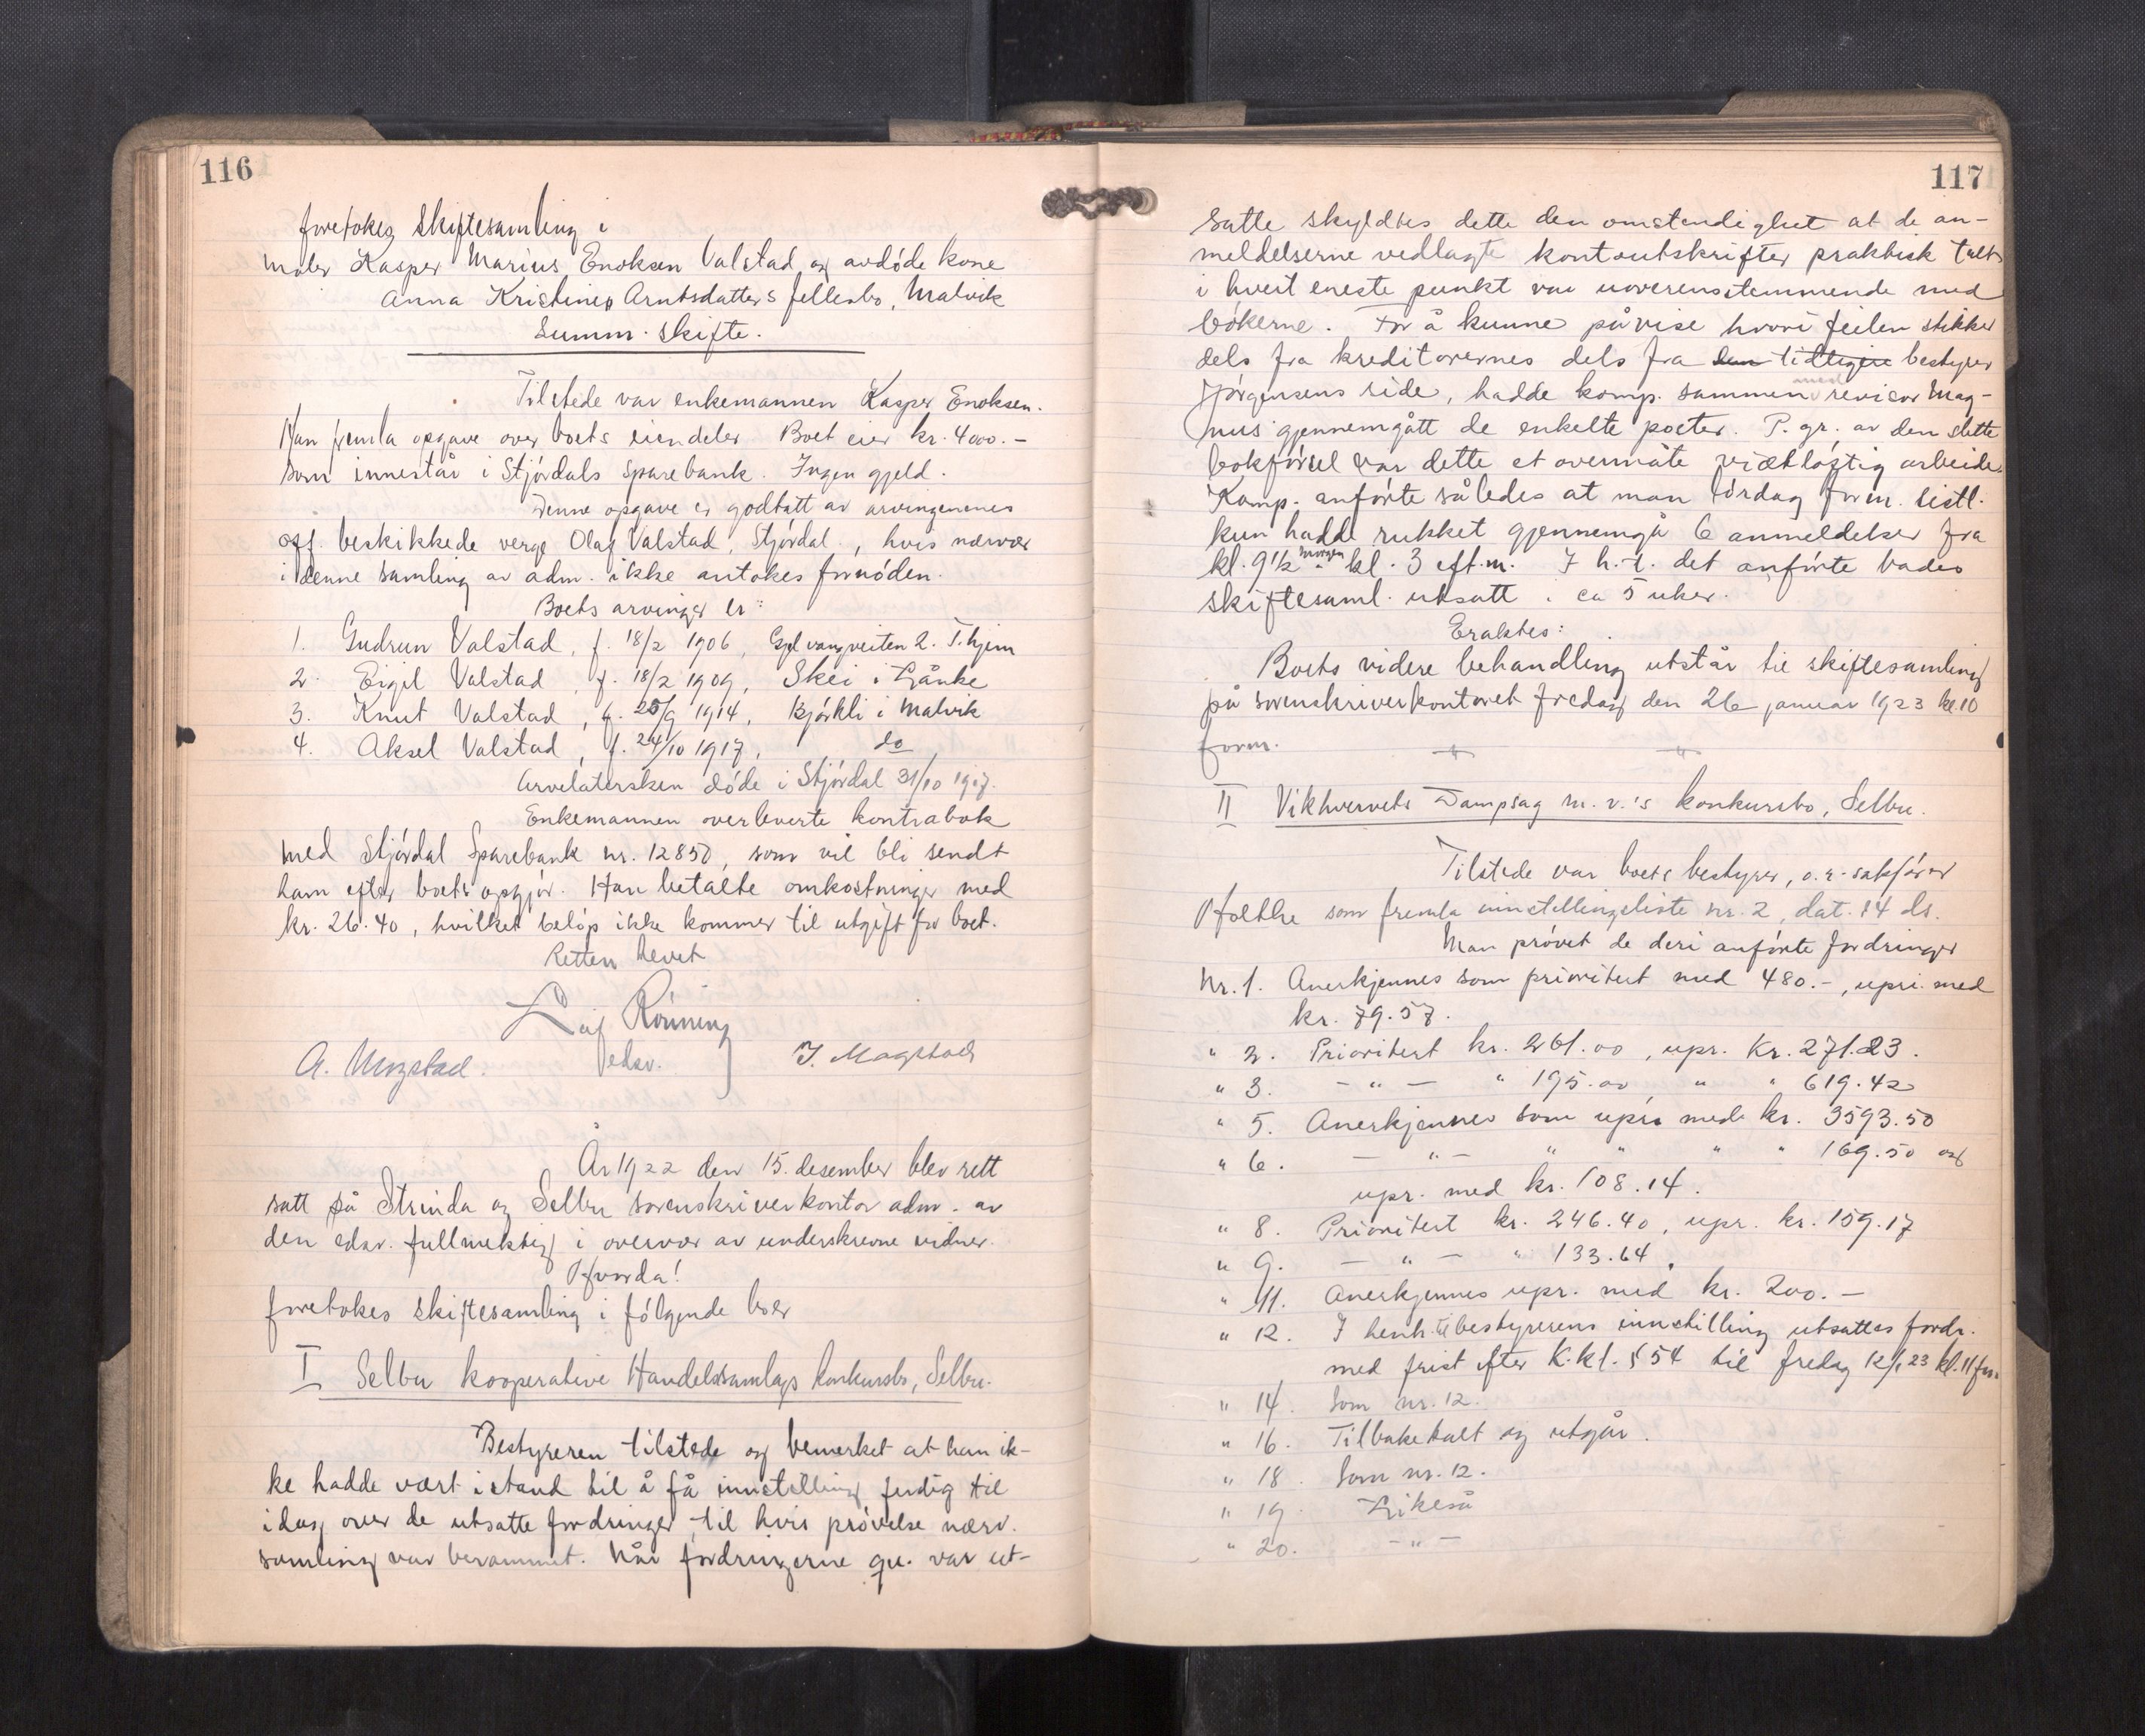 116
foretokes skiftesamling i
maler Kasper Marius Enoksen Valstad og avdøde kone
Anna Kristine Arntsdatters fellesbo, Malvik
Summ. skifte.
Tilstede var enkemannen Kasper Enoksen.
Han fremla opgave over boets eiendeler Boet eier kr. 4000.-
som innestår i Stjørdals Sparebank. Ingen gjeld.
Denne opgave er godtatt av arvingenes
off. beskikkede verge Olaf Valstad, Stjørdal, hvis nærvær
i denne samling av adm. ikke antokes fornøden.
Boets arvinger er:
1. Gudrun Valstad, f. 18/2 1906, 2. T.hjem
2. Eigil Valstad, f. 18/2 1909, Skei i Lånke
3. Knut Valstad, f. 25/9 1914, Bjørkli i Malvik
4. Aksel Valstad, f. 24/10 1917, do
Arvelatersken døde i Stjørdal 31/10 1917.
Enkemannen overleverte kontrabok
med Stjørdal Sparebank nr. 12850, som vil bli sendt
ham efter boets opgjør. Han betalte omkostninger med
kr. 26.40, hvilket beløp ikke kommer til utgift for boet.
Retten hevet
Leif Rönning
edsv.
A. Mogstad. J. Mogstad
År 1922 den 15. desember blev rett
satt på Strinda og Selbu sorenskriverkontor adm. av
den edsv. fullmektig i overvær av underskrevne vidner.
Hvorda!
foretokes skiftesamling i følgende boer
I Selbu kooperative Handelssamlags konkursbo, Selbu.
Bestyreren tilstede og bemerket at han ik-
ke hadde vært istand til å få innstilling ferdig til
idag over de utsatte fordringer, til hvis prøvelse nærv.
samling var berammet. Når fordringerne qu. var ut-
117
satte skyldtes dette den omstendighet at de an-
meldelserne vedlagte kontoutskrifter praktisk talt
i hvert eneste punkt var uoverensstemmende med
bøkerne. For å kunne påvise hvori feilen stikker
dels fra kreditorernes dels fra den tidligere bestyrer
Jørgensens side, hadde komp. sammen med revisor Mag-
nus gjennemgått de enkelte poster. P. gr. av den slette
bokførsel var dette et overmåte vidtløftig arbeide.
Komp. anførte således at man lørdag form. sistl.
kun hadde rukket gjennemgå 6 anmeldelser fra
kl. 9½ morgen - kl. 3 eft.m. I h.t. det anførte bades
skiftesaml. utsatt ca 5 uker.
Eraktes:
Boets videre behandling utstår til skiftesamling
på sorenskriverkontoret fredag den 26 januar 1923 kl. 10
form.
II Vikhvervets Dampsag m. v.'s konkursbo, Selbu.
Tilstede var boets bestyrer, o.r. sakfører
Holthe som fremla innstillingsliste nr. 2, dat. 14 ds.
Man prøvet de deri anførte fordringer
Nr. 1. Anerkjennes som prioritert med 480.-, upri. med
kr. 79.57.
" 2. Prioritert kr. 261.00, upr. Kr. 271.23.
" 3. - " - " 195.00 " " 619.42
" 5. Anerkjennes som upri med kr. 3593.50
" 6. - " - " " " " 169.50 og
upr. med kr. 108.14.
" 8. Prioritert kr. 246.40, upr. kr. 159.17
" 9. - " - " 133.64.
" 11. Anerkjennes upr. med kr. 200.-
" 12. I henh. til bestyrerens innstilling utsattes fordr.
med frist efter K.kl. § 54 til fredag 12/1 23 kl. 11 fm.
" 14. Som nr. 12.
" 16. Tilbakekalt og utgår.
" 18. Som nr. 12.
" 19. Likeså
" 20. - " -